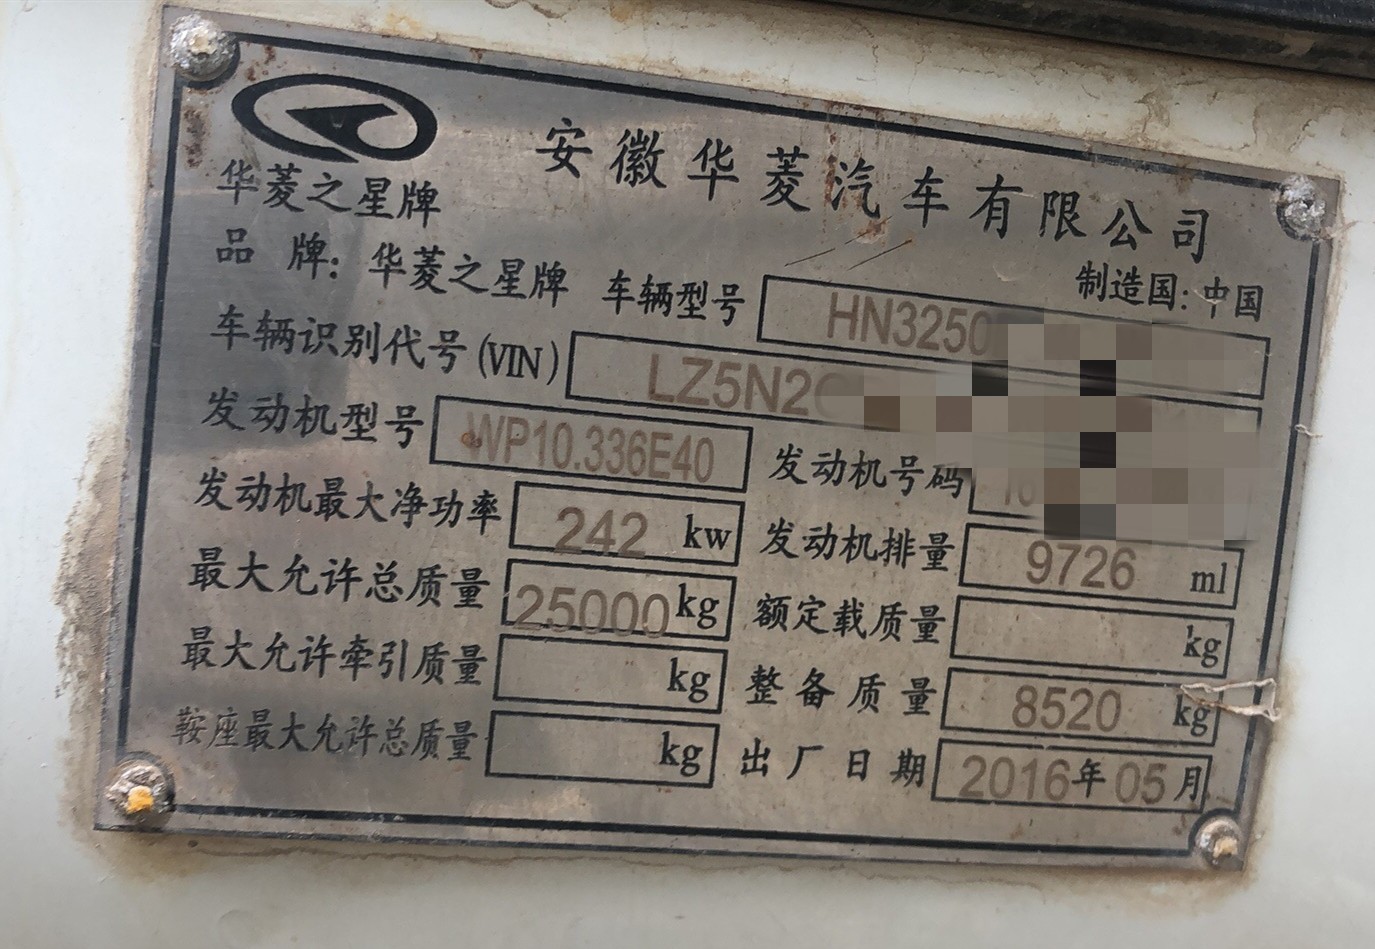 安徽华菱汽车有限公司
华菱之星牌
制造国：中国
品 牌：华菱之星牌 车辆型号 HN3250
车辆识别代号(VIN) LZ5N2
发动机型号 WP10.336E40 发动机号码 16
发动机最大净功率 242 kw 发动机排量 9726 ml
最大允许总质量 25000 kg 额定载质量 kg
最大允许牵引质量 kg 整备质量 8520 kg
鞍座最大允许总质量 kg 出厂日期 2016年05月